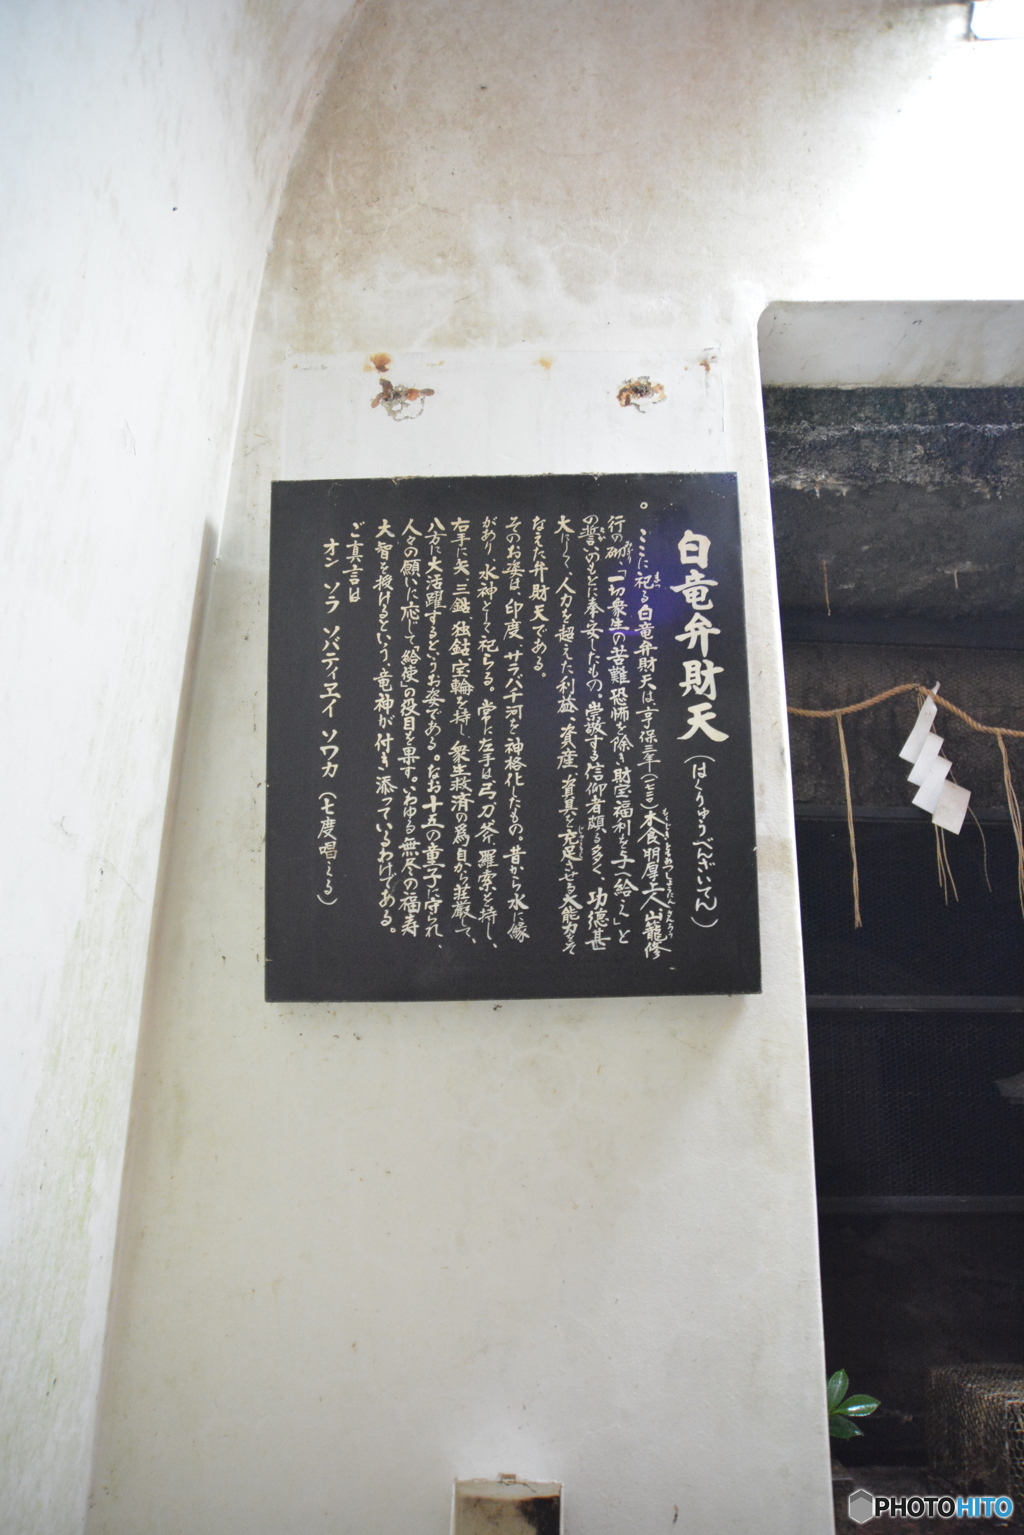 白竜弁財天(はくりゅうべんざいてん)
。ここに祀る白竜弁財天は、享保三年(一七一八)木食明厚上人山籠修
行の砌、「一切衆生の苦難恐怖を除き財宝福利を与へ給え」と
の誓いのもとに奉安したもの。崇敬する信仰者頗る多く、功徳甚
大にして、人力を超えた利益、資産、資具を充足させる大能力をそ
なえた弁財天である。
そのお姿は、印度、サラバチ河を神格化したもの。昔から水に縁
があり、水神として祀らる。常に左手は弓、刀、斧、羅索を持し、
右手に矢、三鈷、独鈷、宝輪を持し、衆生救済の為自から荘厳して、
八方に大活躍するというお姿である。なお十五の童子に守られ、
人々の願いに応じて、「給使」の役目を果す。いわゆる無尽の福寿
大智を授けるという、竜神が付き添っているわけである。
ご真言は
オン ソラ ソバティヱイ ソワカ(七度唱える)
PHOTOHITO